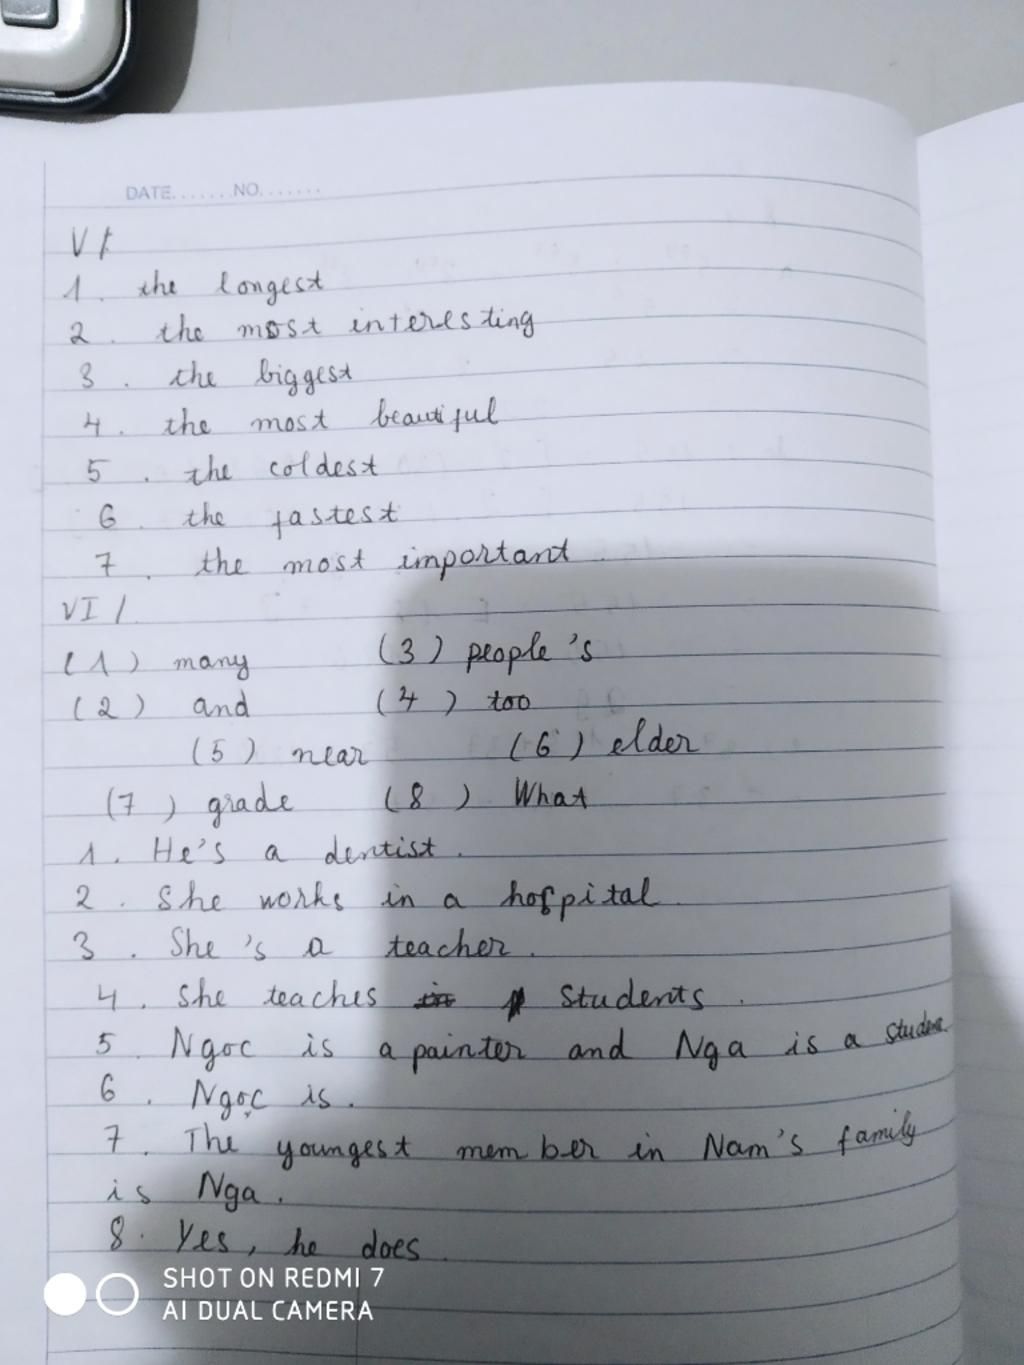 DATE.......NO.......
V/
1. the longest
2. the most interesting
3. the biggest
4. the most beautiful
5. the coldest
6. the fastest
7. the most important
VI/
(1) many (3) people's
(2) and (4) too
(5) near (6) elder
(7) grade (8) What
1. He's a dentist.
2. She works in a hospital.
3. She's a teacher.
4. She teaches students.
5. Ngoc is a painter and Nga is a
6. Ngọc is.
7. The youngest member in Nam's family
is Nga.
8. Yes, he does.
SHOT ON REDMI 7
AI DUAL CAMERA